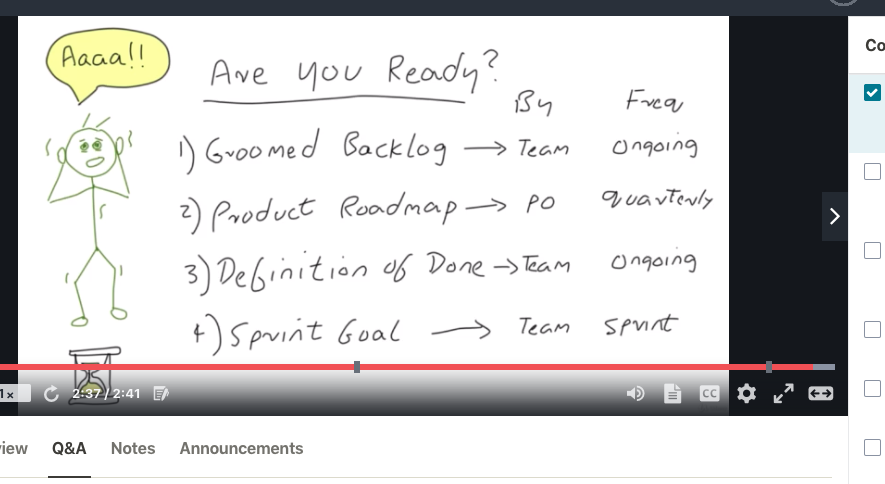 Aaaa!!
Are you Ready?
By Freq
1) Groomed Backlog → Team Ongoing
2) Product Roadmap → PO quarterly
3) Definition of Done → Team Ongoing
4) Sprint Goal → Team Sprint
Co
1x 2:37 / 2:41 CC
iew Q&A Notes Announcements